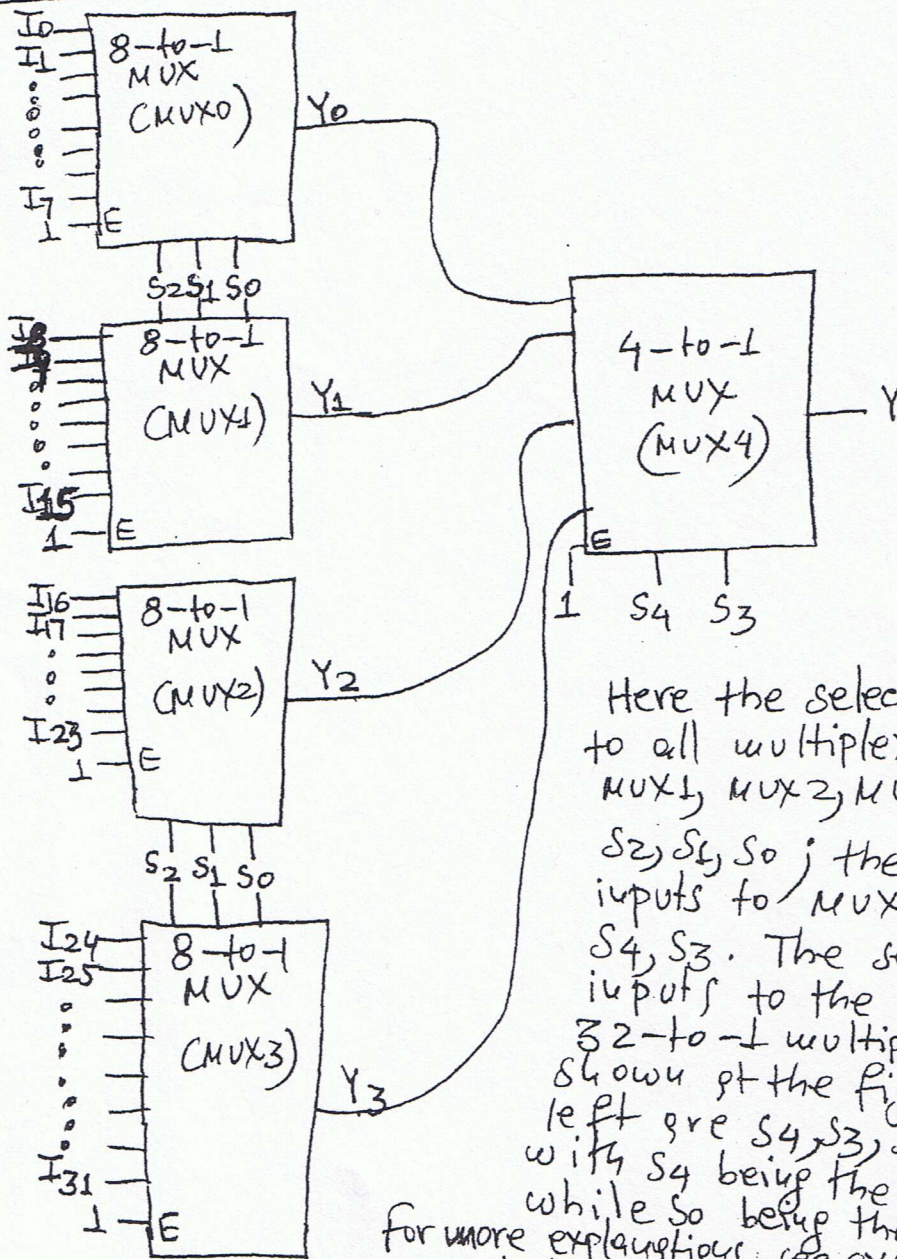 I0
I1
I7
1
E
8-to-1
MUX
(MUX0)
Y0
S2 S1 S0
I8
I9
I15
1
E
8-to-1
MUX
(MUX1)
Y1
4-to-1
MUX
(MUX4)
Y
E
1 S4 S3
I16
I17
I23
1
E
8-to-1
MUX
(MUX2)
Y2
S2 S1 S0
I24
I25
I31
1
E
8-to-1
MUX
(MUX3)
Y3
Here the selec
to all multiplex
MUX1, MUX2, MU
S2, S1, S0 ; the
inputs to MUX
S4, S3. The se
inputs to the
32-to-1 multip
shown at the fig
left are S4, S3,
with S4 being the
while S0 being the
for more explanations,